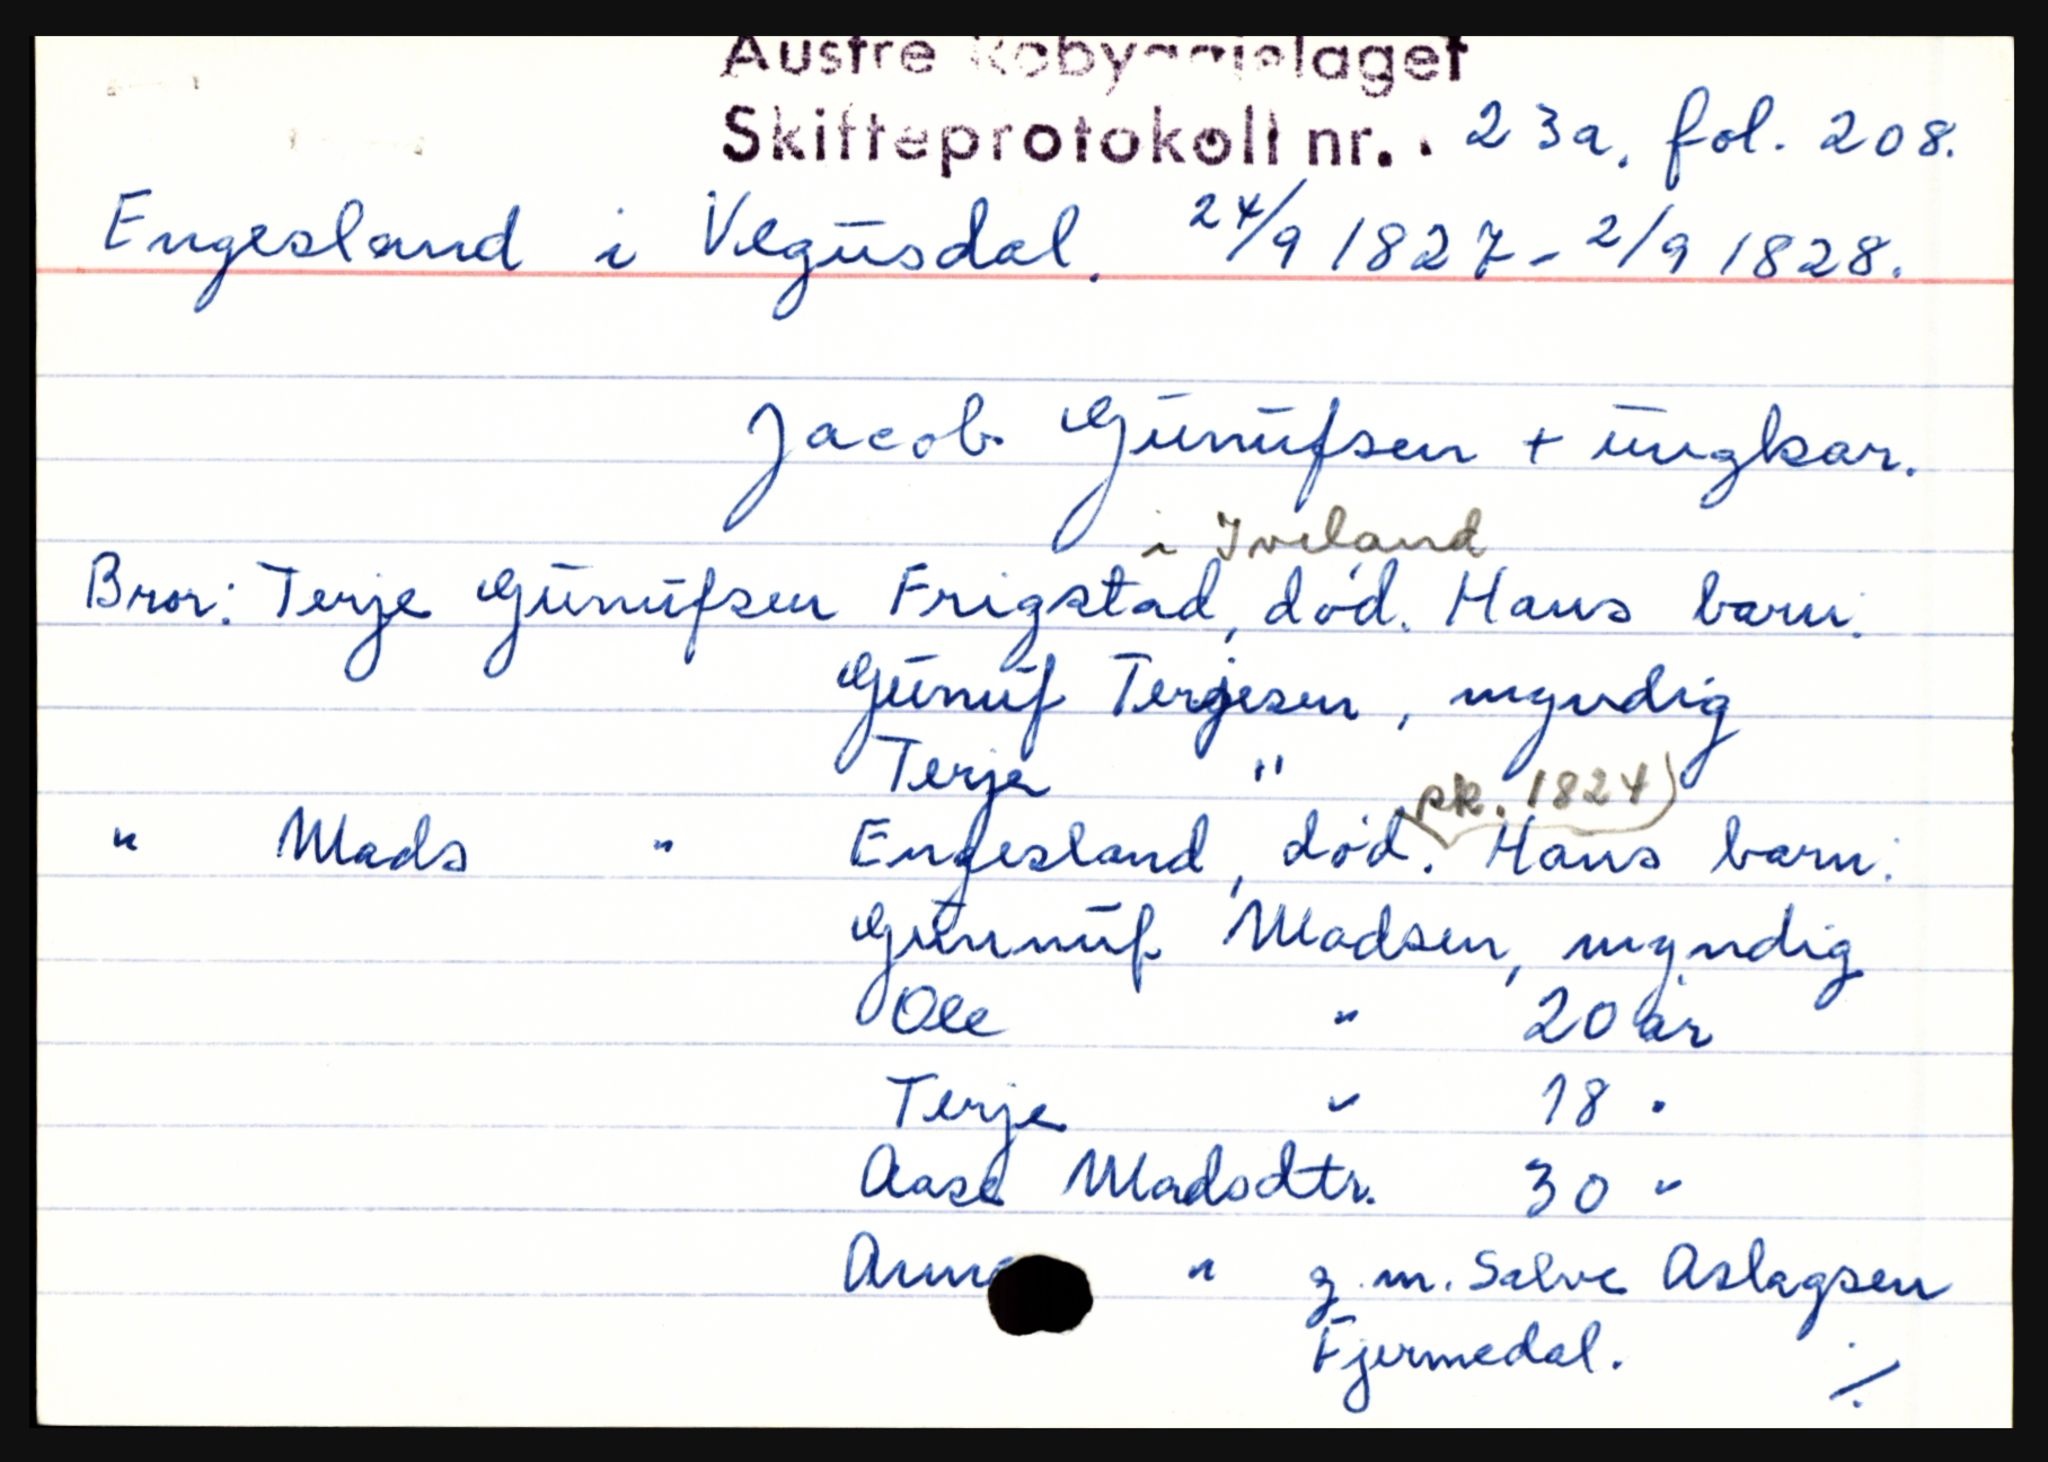 Austre Robyggjelaget
Skifteprotokoll nr. 23a, fol. 208.
Engesland i Vegusdal. 24/9 1827 - 2/9 1828.
Jacob Gunufsen + ungkar.
i Iveland
Bror: Terje Gunufsen Frigstad, død. Hans barn:
Gunuf Terjesen, myndig
Terje "
sk. 1824)
" Mads " Engesland, død. Hans barn:
Gunnuf Madsen, myndig
Ole " 20 år
Terje " 18 "
Aase Madsdtr. 30 "
Anne " g.m. Salve Aslagsen
Fjermedal.
./.